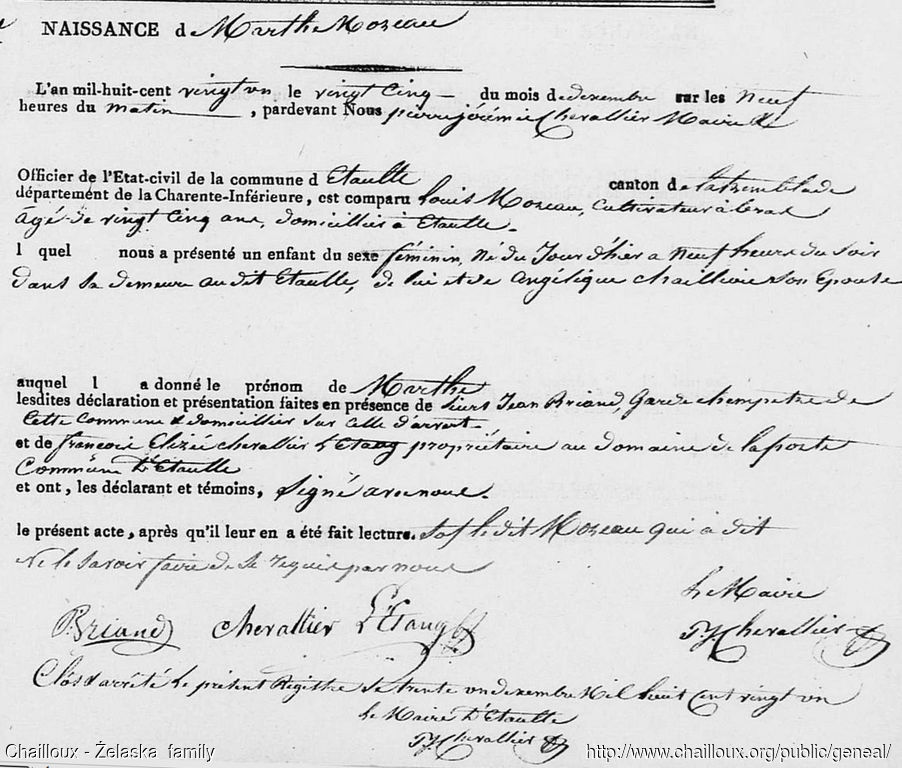 NAISSANCE de Marthe Mozeau
L'an mil-huit-cent vingt un le vingt Cinq du mois de dexembre sur les Neuf
heures du matin, pardevant Nous pierre jérémie Chevallier Maire de
Officier de l'Etat-civil de la commune d Etaulle canton de latremblade
département de la Charente-Inférieure, est comparu Louis Mozeau, Cultivateur à
agé de vingt Cinq ans, domicillier à Etaulle.
l quel nous a présenté un enfant du sexe féminin, Né du Jour d'hier a neuf heure du soir
dans sa demeure au dit Etaulle, de lui et de angélique chaillioux son Epouse
auquel l a donné le prénom de Marthe
lesdites déclaration et présentation faites en présence de sieurs Jean Briand, Garde chempetre de
Cette Commune & domicillier sur celle d'arvert.
et de francois Elizée chevallier L'Etang propriétaire au domaine de laporte
Commune D'Etaulle
et ont, les déclarant et témoins, signé avec nous.
le présent acte, après qu'il leur en a été fait lecture. sof le dit Mozeau qui à dit
Ne le savoir faire de Se requis par nous
Le Maire
Briand chevallier L'Etang PJ Chevallier
Clos & arrêté Le présent Registre Le trente un dexembre Mil huit Cent vingt un
Le Maire D'Etaulle
PJ Chevallier
Chailloux - Želaska family http://www.chailloux.org/public/geneal/